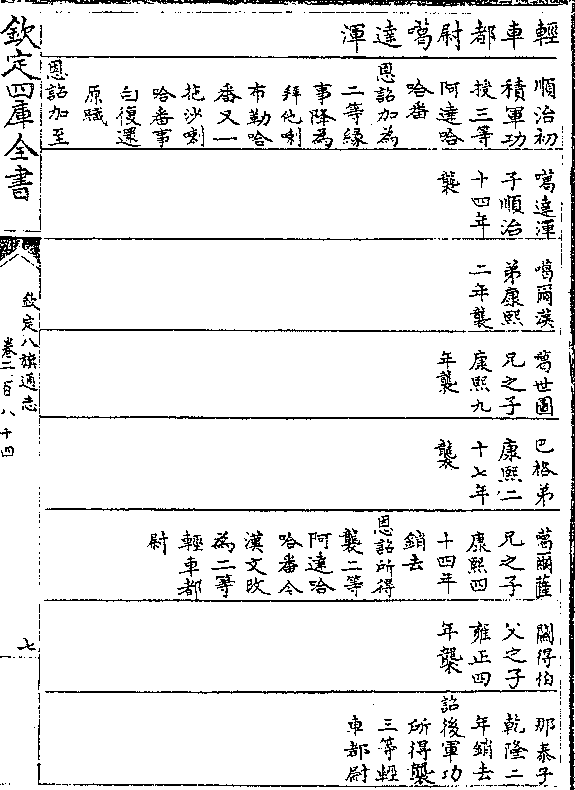 輕車都尉噶達渾
順治初
積軍功
授三等
阿達哈
哈番
恩詔加為
二等緣
事降為
拜他喇
布勒哈
番又一
拖沙喇
哈番事
白復還
原職
恩詔加至
噶達渾
子順治
十四年
襲
噶爾漢
弟康熙
二年襲
葛世圖
兄之子
康熙九
年襲
巴格弟
康熙二
十七年
襲
葛爾薩
兄之子
康熙四
十四年
銷去
恩詔所得
襲二等
阿達哈
哈番今
漢文改
為二等
輕車都
尉
關得伯
父之子
雍正四
年襲
那泰子
乾隆二
年銷去
詔後軍功
所得襲
三等輕
車都尉
欽定四庫全書
欽定八旗通志
卷二百八十四
七